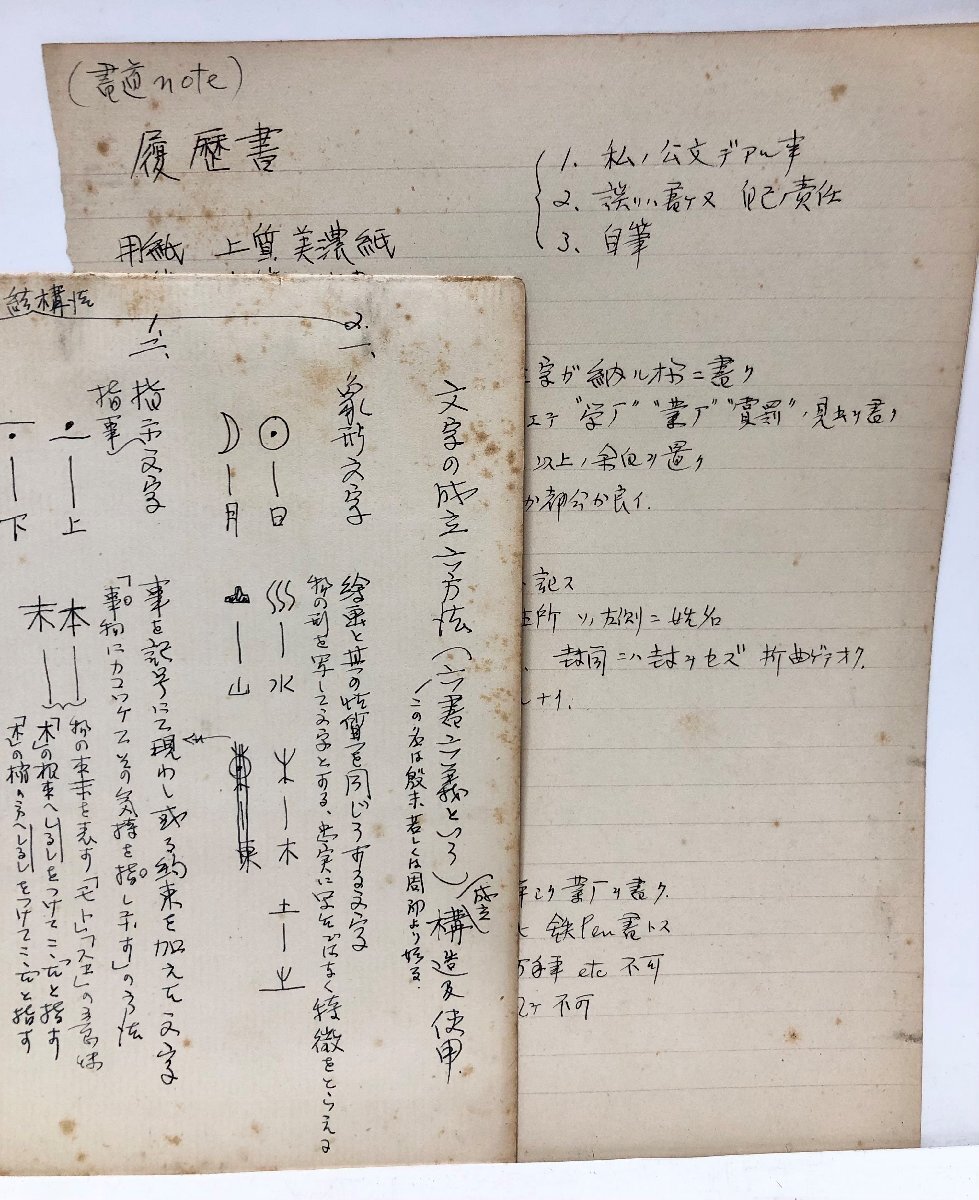 (書道note)
履歴書
用紙 上質美濃紙
1. 私ノ公文デアル事
2. 誤リハ書ケヌ 自己ノ責任
3. 自筆
字ガ納ル様ニ書ク
"学丆" "業丆" "賞罰"ノ見出シ書ク
以上ノ余白ヲ置ク
部分が良イ.
記ス
所 ソノ左側ニ姓名
封筒ニハ封ヲセズ 折曲ゲテオク.
業丆ヲ書ク.
鉄Pen書トス
etc 不可
不可
結構法
文字の成立六方法(六書六義という)構造及使用
(成立)
この名は殷末若しくは周初より始る.
2.
一、象形文字
絵画と其の性質を同じうする文字
物の形を写して文字とする、忠実に写生ではなく特徴をとらえる
日
水
木
土
月
山
東
1.
二、指示文字
指事
事を記号にて現わし或る約束を加えた文字
「事物にカコツケてその気持を指し示す」の方法
上
下
本
末
物の本末を表す「モト」「スヱ」の意味
「木」の根本へしるしをつけてここだと指す
「木」の梢の方へしるしをつけてここだと指す